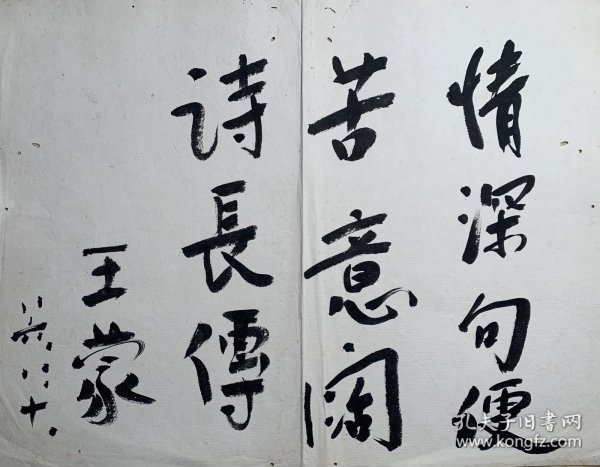 情深句便
苦意阔
詩長傳
王蒙
八六.八.十.
孔夫子旧书网
www.kongfz.com